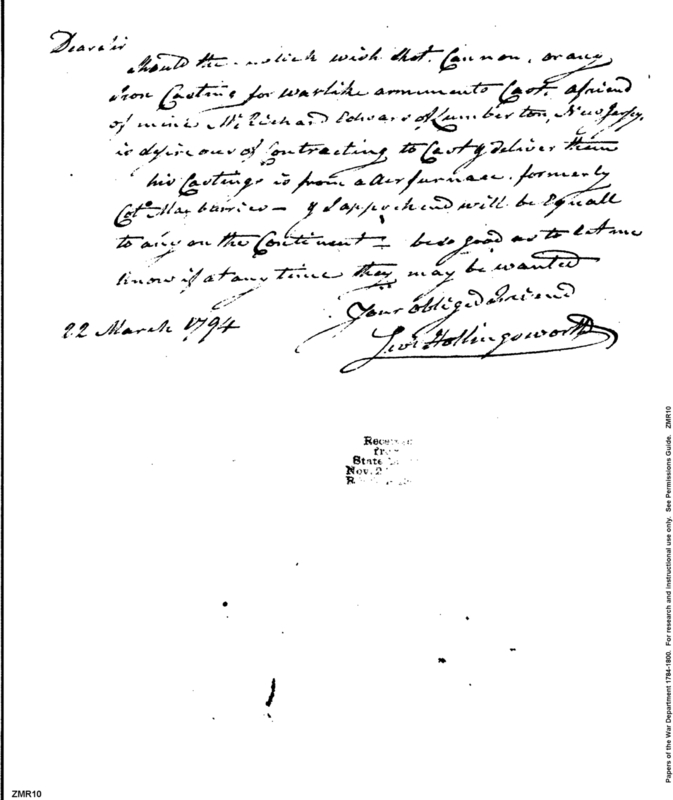 Dear Sir
Should the publick wish Shot. Cannon, or any
Iron Casting for warlike armiments Cast. a friend
of mine Mr. Richard Edwards of Lumberton, New Jersey,
is desireous of Contracting to Cast & deliver them
his Castings is from a Air furnace. formerly
Colo. – & I apprehend will be Equall
to any on the Continent – be so good as to let me
know if at any time they may be wanted
Your obliged Friend
22 March 1794
Levi Hollingsworth
Received
from
State
Nov. 2
ZMR10
Papers of the War Department 1784-1800. For research and instructional use only. See Permissions Guide. ZMR10